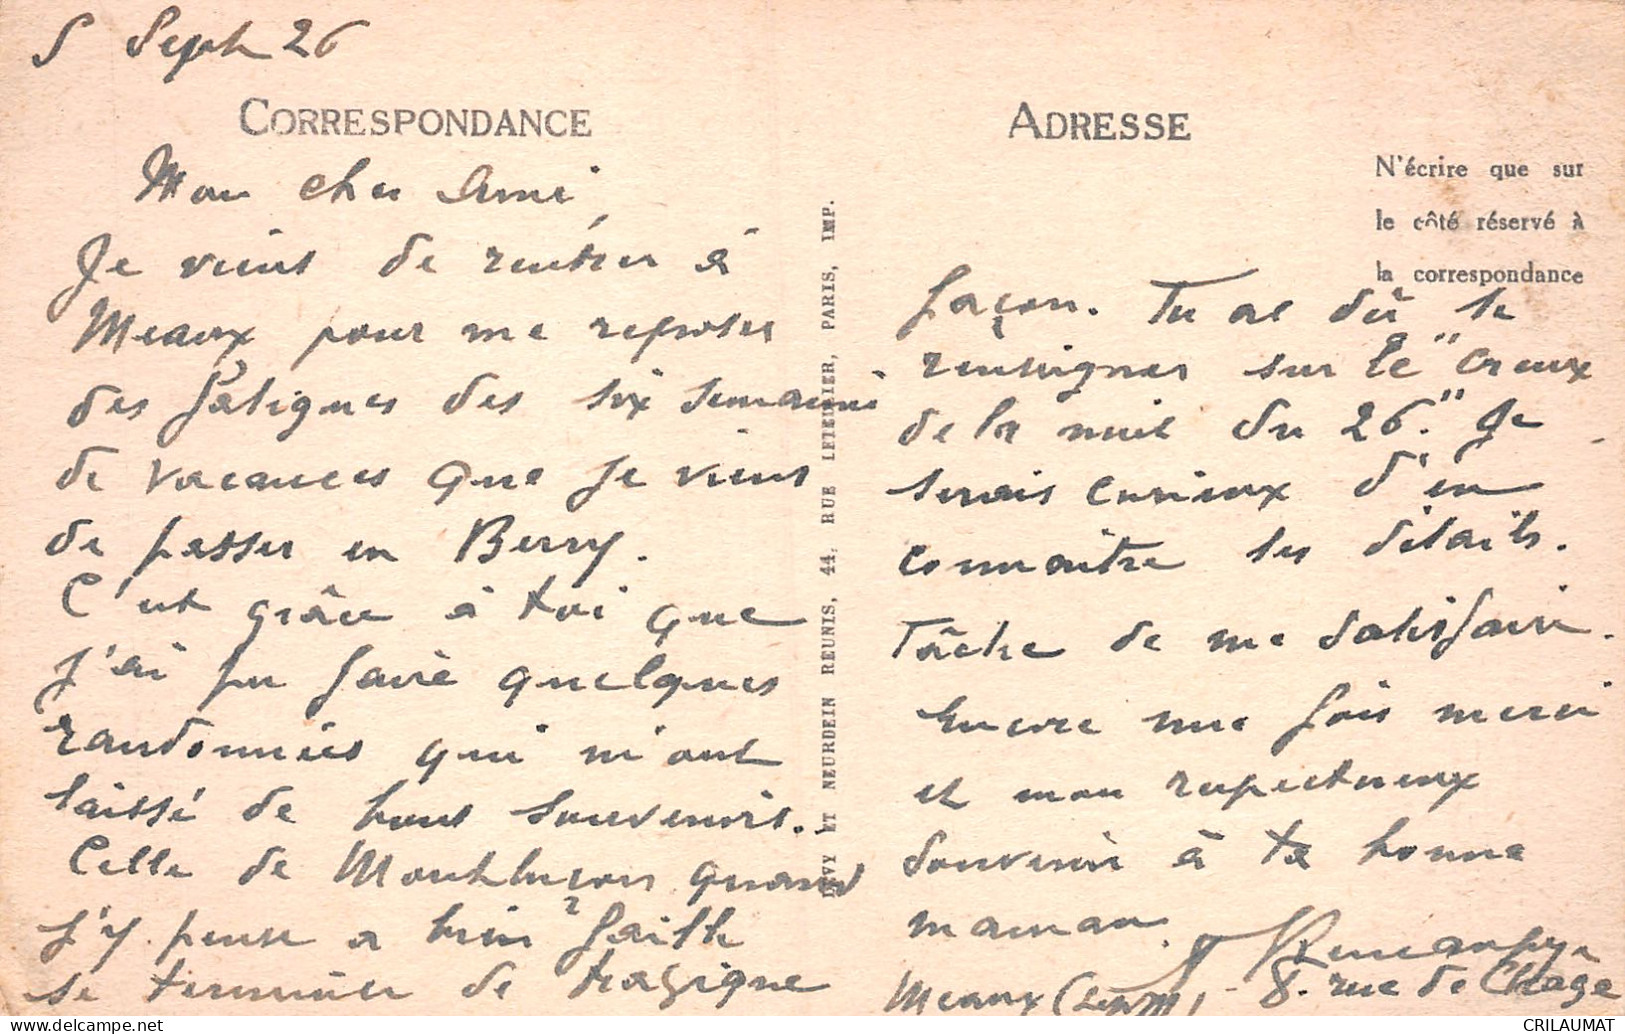 5 Sept 26
CORRESPONDANCE
Mon cher Ami,
Je viens de rentrer à
Meaux pour me reposer
des fatigues des six semaines
de vacances que je viens
de passer en Berry.
C'est grâce à toi que
j'ai pu faire quelques
randonnées qui m'ont
laissé de bons souvenirs.
Celle de Montluçon quand
j'y pense a bien failli
se terminer de tragique
LEVY ET NEURDEIN REUNIS, 44, RUE LETELLIER, PARIS, IMP.
ADRESSE
N'écrire que sur
le côté réservé à
la correspondance
façon. Tu as dû te
renseigner sur le "creux
de la nuit du 26." Je
serais curieux d'en
connaître les détails.
Tâche de me satisfaire.
Encore une fois merci
et mon respectueux
souvenir à ta bonne
maman.
Meaux 8. rue de Chage
CRILAUMAT